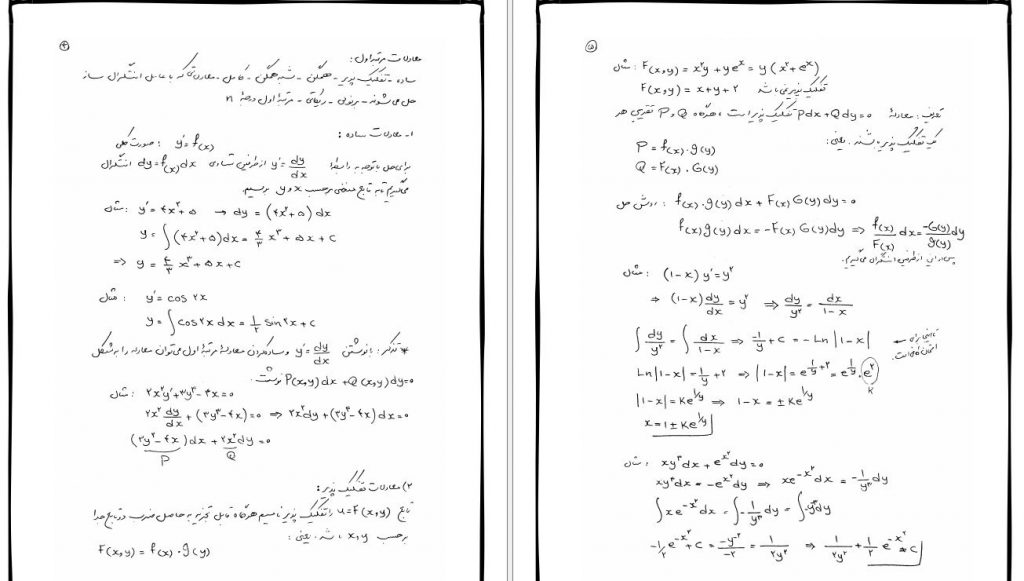 ۴
معادلات مرتبه اول:
ساده - تفکیک پذیر - همگن - شبه همگن - کامل - معادلاتی که با عامل انتگرال ساز
حل می شوند - برنولی - ریکاتی - مرتبهٔ اول درجهٔ n
۱- معادلات ساده:
صورت کلی: y′=f(x)
برای حل با توجه به رابطهٔ y′=dy/dx از طرفین تساوی dy=f(x)dx انتگرال
می گیریم تا به تابع بر حسب x و y برسیم.
مثال: y′=۴x²+۵ → dy=(۴x²+۵)dx
y=∫(۴x²+۵)dx=۴/۳ x³+۵x+c
⇒ y=۴/۳ x³+۵x+c
مثال: y′=cos ۲x
y=∫cos۲x dx=۱/۲ sin۲x+c
* تذکر: با نوشتن y′=dy/dx و ساده کردن معادلهٔ مرتبهٔ اول می توان معادله را به شکل
P(x,y)dx+Q(x,y)dy=۰ نوشت.
مثال: ۲x²y′+۳y³-۴x=۰
۲x² dy/dx+(۳y³-۴x)=۰ ⇒ ۲x²dy+(۳y³-۴x)dx=۰
(۳y³-۴x)dx+۲x²dy=۰
P Q
۲) معادلات تفکیک پذیر:
تابع u=F(x,y) را تفکیک پذیر نامیم هرگاه قابل تجزیه به حاصل ضرب دو تابع جدا
بر حسب x و y باشد. یعنی:
F(x,y)=f(x)·g(y)
۵
مثال: F(x,y)=x²y+yeˣ=y(x²+eˣ)
F(x,y)=x+y+۲ تفکیک پذیر نمی باشد
تعریف: معادلهٔ Pdx+Qdy=۰ تفکیک پذیر است، هرگاه P و Q تفکیک هر
یک تفکیک پذیر باشند. یعنی:
P=f(x)·g(y)
Q=F(x)·G(y)
روش حل: f(x)·g(y)dx+F(x)G(y)dy=۰
f(x)g(y)dx=-F(x)G(y)dy ⇒ f(x)/F(x) dx=-G(y)/g(y) dy
پس از این از طرفین انتگرال می گیریم.
مثال: (۱-x)y′=y²
⇒ (۱-x)dy/dx=y² ⇒ dy/y²=dx/۱-x
∫dy/y²=∫dx/۱-x ⇒ -۱/y+c=-Ln|۱-x|
Ln|۱-x|=۱/y+۲ ⇒ |۱-x|=e^(۱/y+۲)=e^(۱/y)·e^۲
K
|۱-x|=Ke^(۱/y) ⇒ ۱-x=±Ke^(۱/y)
x=۱±Ke^(۱/y)
مثال: xy³dx+e^(x²)dy=۰
xy³dx=-e^(x²)dy ⇒ xe^(-x²)dx=-۱/y³ dy
∫xe^(-x²)dx=∫-۱/y³ dy=∫-y⁻³dy
-۱/۲ e^(-x²)+c=-y⁻²/-۲=۱/۲y² ⇒ ۱/۲y²+۱/۲ e^(-x²)=c